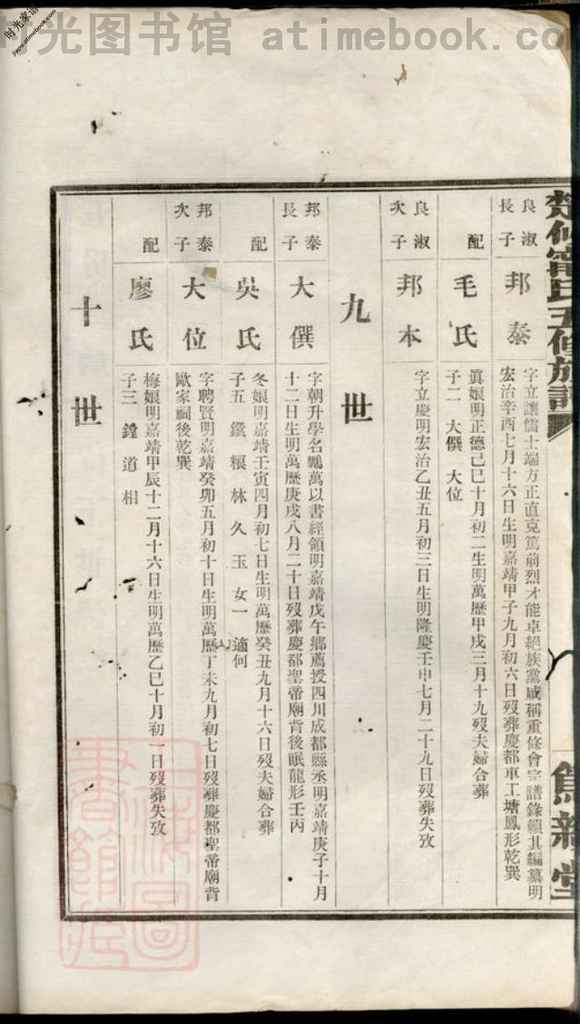 时光图书馆 atimebook.com
氏五修族譜
良淑長子
邦泰
字立讓儒士端方正直克篤前烈才能卓絕族黨咸稱重修會宗譜錄賴其編纂明
宏治辛酉七月十六日生明嘉靖甲子九月初六日歿葬慶都車工塘鳳形乾巽
配
毛氏
眞娘明正德己巳十月初二生明萬歷甲戌三月十九歿夫婦合葬
子二 大僎 大位
良淑次子
邦本
字立慶明宏治乙丑五月初三日生明隆慶壬申七月二十九日歿葬失攷
九世
邦泰長子
大僎
字朝升學名鵬萬以書經領明嘉靖戊午鄉薦授四川成都縣丞明嘉靖庚子十月
十二日生明萬歷庚戌八月二十日歿葬慶都聖帝廟背後眠龍形壬丙
配
吳氏
冬娘明嘉靖壬寅四月初七日生明萬歷癸丑九月十六日歿夫婦合葬
子五 鑛 根 林 久 玉 女一 適何
邦泰次子
大位
字聘賢明嘉靖癸卯五月初十日生明萬歷丁未九月初七日歿葬慶都聖帝廟背
歐家祠後乾巽
配
廖氏
梅娘明嘉靖甲辰十二月十六日生明萬歷乙巳十月初一日歿葬失攷
子三 鐘 道 相
十世